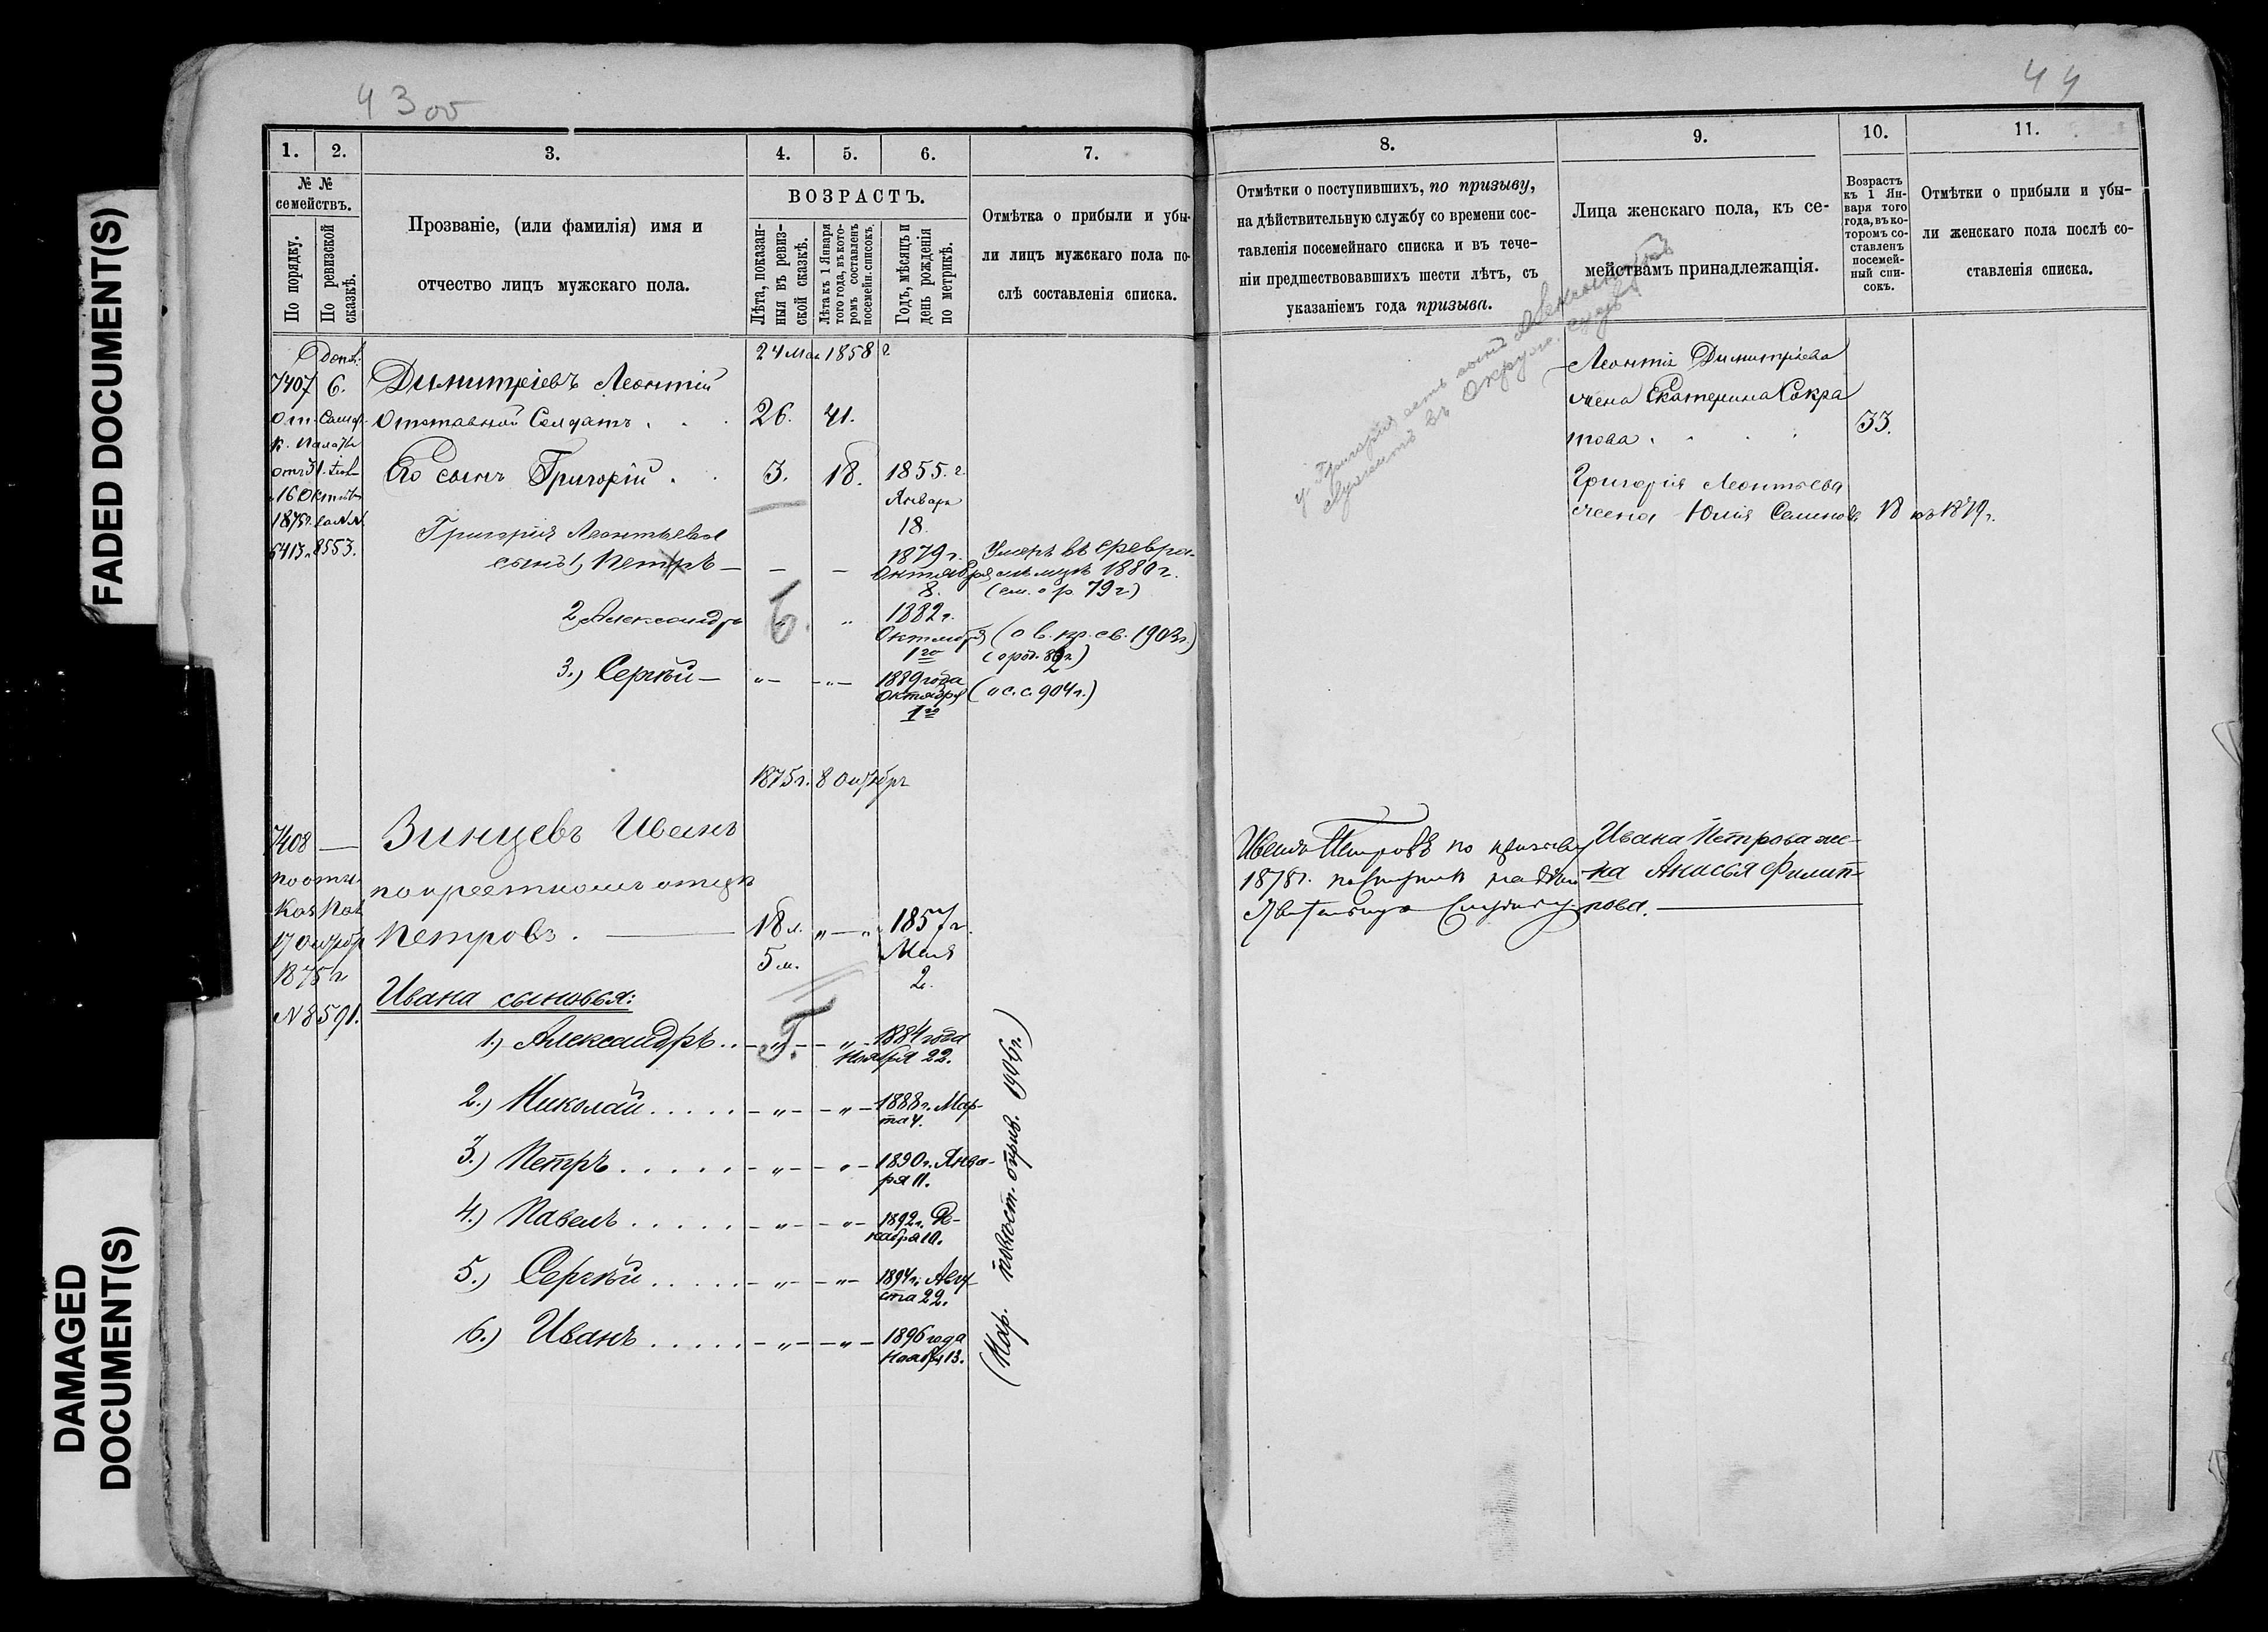 FADED DOCUMENT(S)
DAMAGED
DOCUMENT(S)
43 об
44
1. 2. 3. 4. 5. 6. 7.
№ №
семействъ.
По порядку.
По ревизской
сказкѣ.
Прозваніе, (или фамилія) имя и
отчество лицъ мужскаго пола.
ВОЗРАСТЪ.
Лѣта, показан-
ныя въ ревиз-
ской сказкѣ.
Лѣта къ 1 Января
того года, въ кото-
ромъ составленъ
посемейн. списокъ.
Годъ, мѣсяцъ и
день рожденія
по метрикѣ.
Отмѣтка о прибыли и убы-
ли лицъ мужскаго пола по-
слѣ составленія списка.
24 Мая 1858 г
7407 6. Димитріевъ Леонтій
Отставной Солдатъ . . 26. 41.
Его сынъ Григорій . . 3. 18. 1855. г
Января
18.
16 Октября
1875 г. за №№
6413 и 8553.
Григорія Леонтьева
сынъ 1, Петръ — — — 1879 г. Умеръ въ Февра-
Октября лѣ мцѣ 1880 г.
8. (см. о р. 79 г)
2 Александръ „ 1882 г.
Б.
Октября (о в. пр. св. 1903 г.)
1го (о род. 82 г)
3.) Сергѣй — „— —„— 1889 года
Октября (о с. с. 904 г.)
1го
1875 г. 8 Октября
7408 — Зинцевъ Иванъ
по крестномъ отцѣ
Петровъ. — 18 л. „—„ 1857 г.
5 м. Мая
2.
17 Октябр
1875 г.
№ 8591.
Ивана сыновья:
1.) Александръ . . —„— —„— 1884 года
Ноября 22.
Г.
2.) Николай . . . . . —„— —„— 1888 г. Мар-
та 4.
3.) Петръ . . . . . —„— —„— 1890 г. Янва-
ря 11.
4.) Павелъ . . . . . —„— —„— 1892 г. Де-
кабря 10.
5.) Сергѣй . . . . . —„— —„— 1894 г. Авгу-
ста 22.
6.) Иванъ . . . . . —„— —„— 1896 года
Ноября 13.
1906 г.)
8. 9. 10. 11.
Отмѣтки о поступившихъ, по призыву,
на дѣйствительную службу со времени сос-
тавленія посемейнаго списка и въ тече-
ніи предшествовавшихъ шести лѣтъ, съ
указаніемъ года призыва.
Лица женскаго пола, къ се-
мействамъ принадлежащія.
Возрастъ
къ 1 Ян-
варя того
года, въ ко-
торомъ со-
ставленъ
посемей-
ный спи-
сокъ.
Отмѣтки о прибыли и убы-
ли женскаго пола послѣ со-
ставленія списка.
у Григорія есть сынъ Александръ
служитъ въ Окружн. судѣ
Леонтія Димитріева
жена Екатерина Сокра
това . . . 33.
Григорія Леонтьева
жена Юлія Семенова 18 въ 1879 г.
Иванъ Петровъ по призыву
1878 г. поступилъ на дѣй
ствительную службу
Ивана Петрова же-
на Анисья Филип-
пова. —